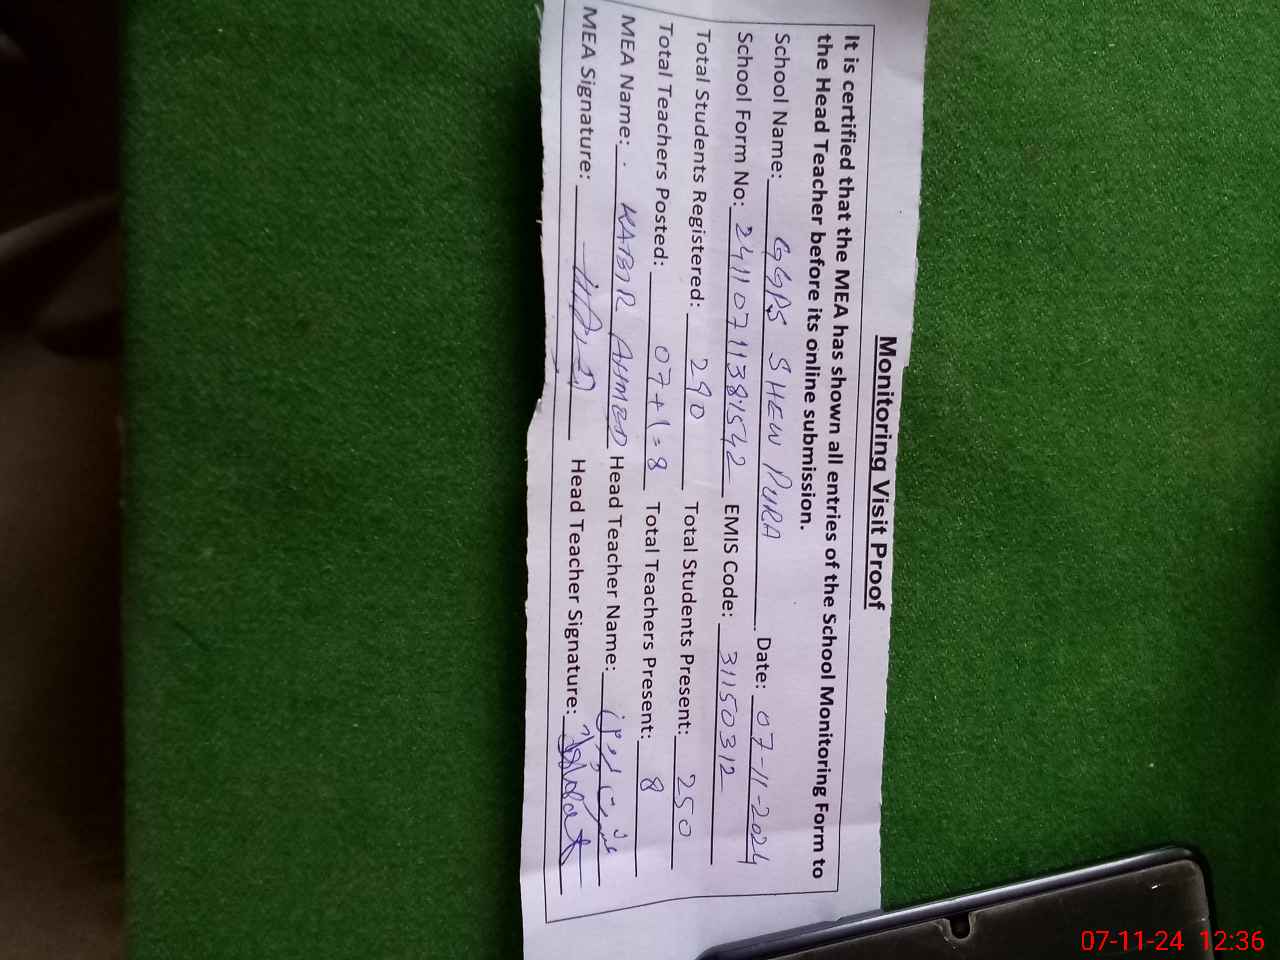 Monitoring Visit Proof
It is certified that the MEA has shown all entries of the School Monitoring Form to
the Head Teacher before its online submission.
School Name: GGPS SHEW PURA Date: 07-11-2024
School Form No: 24110711381542 EMIS Code: 31150312
Total Students Registered: 290 Total Students Present: 250
Total Teachers Posted: 07+1=8 Total Teachers Present: 8
MEA Name: KABIR AHMED Head Teacher Name:
MEA Signature: Head Teacher Signature:
07-11-24 12:36